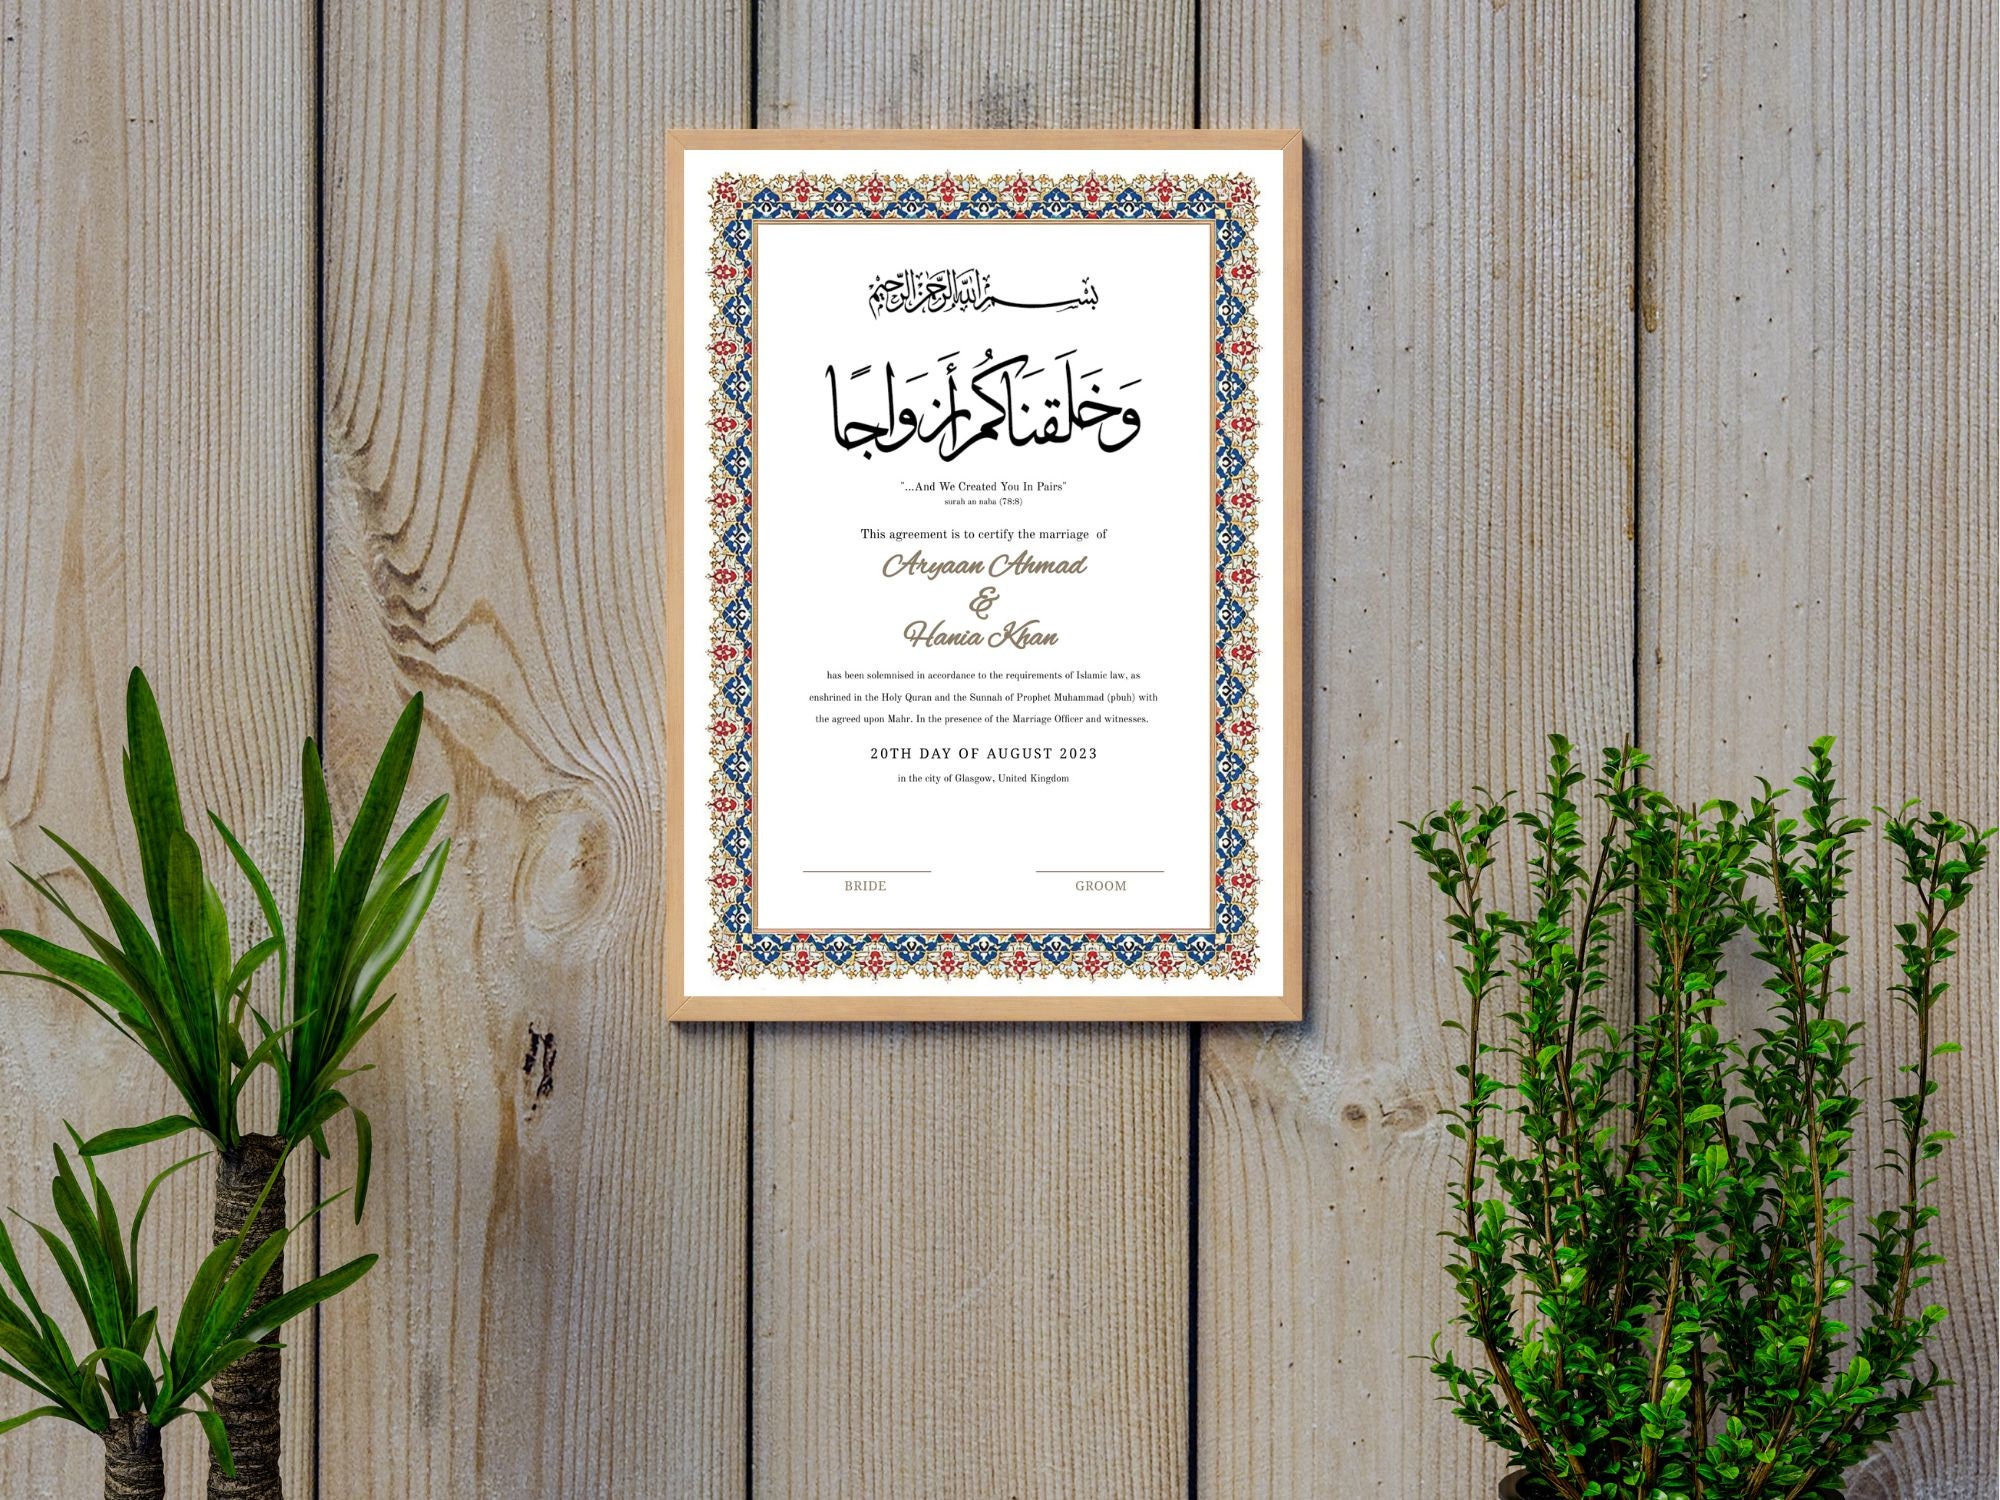 بسم الله الرحمن الرحيم
وَخَلَقنَاكُم أَزوَاجًا
"...And We Created You In Pairs"
surah an naba (78:8)
This agreement is to certify the marriage of
Aryaan Ahmad
&
Hania Khan
has been solemnised in accordance to the requirements of Islamic law, as
enshrined in the Holy Quran and the Sunnah of Prophet Muhammad (pbuh) with
the agreed upon Mahr. In the presence of the Marriage Officer and witnesses.
20TH DAY OF AUGUST 2023
in the city of Glasgow, United Kingdom
BRIDE GROOM